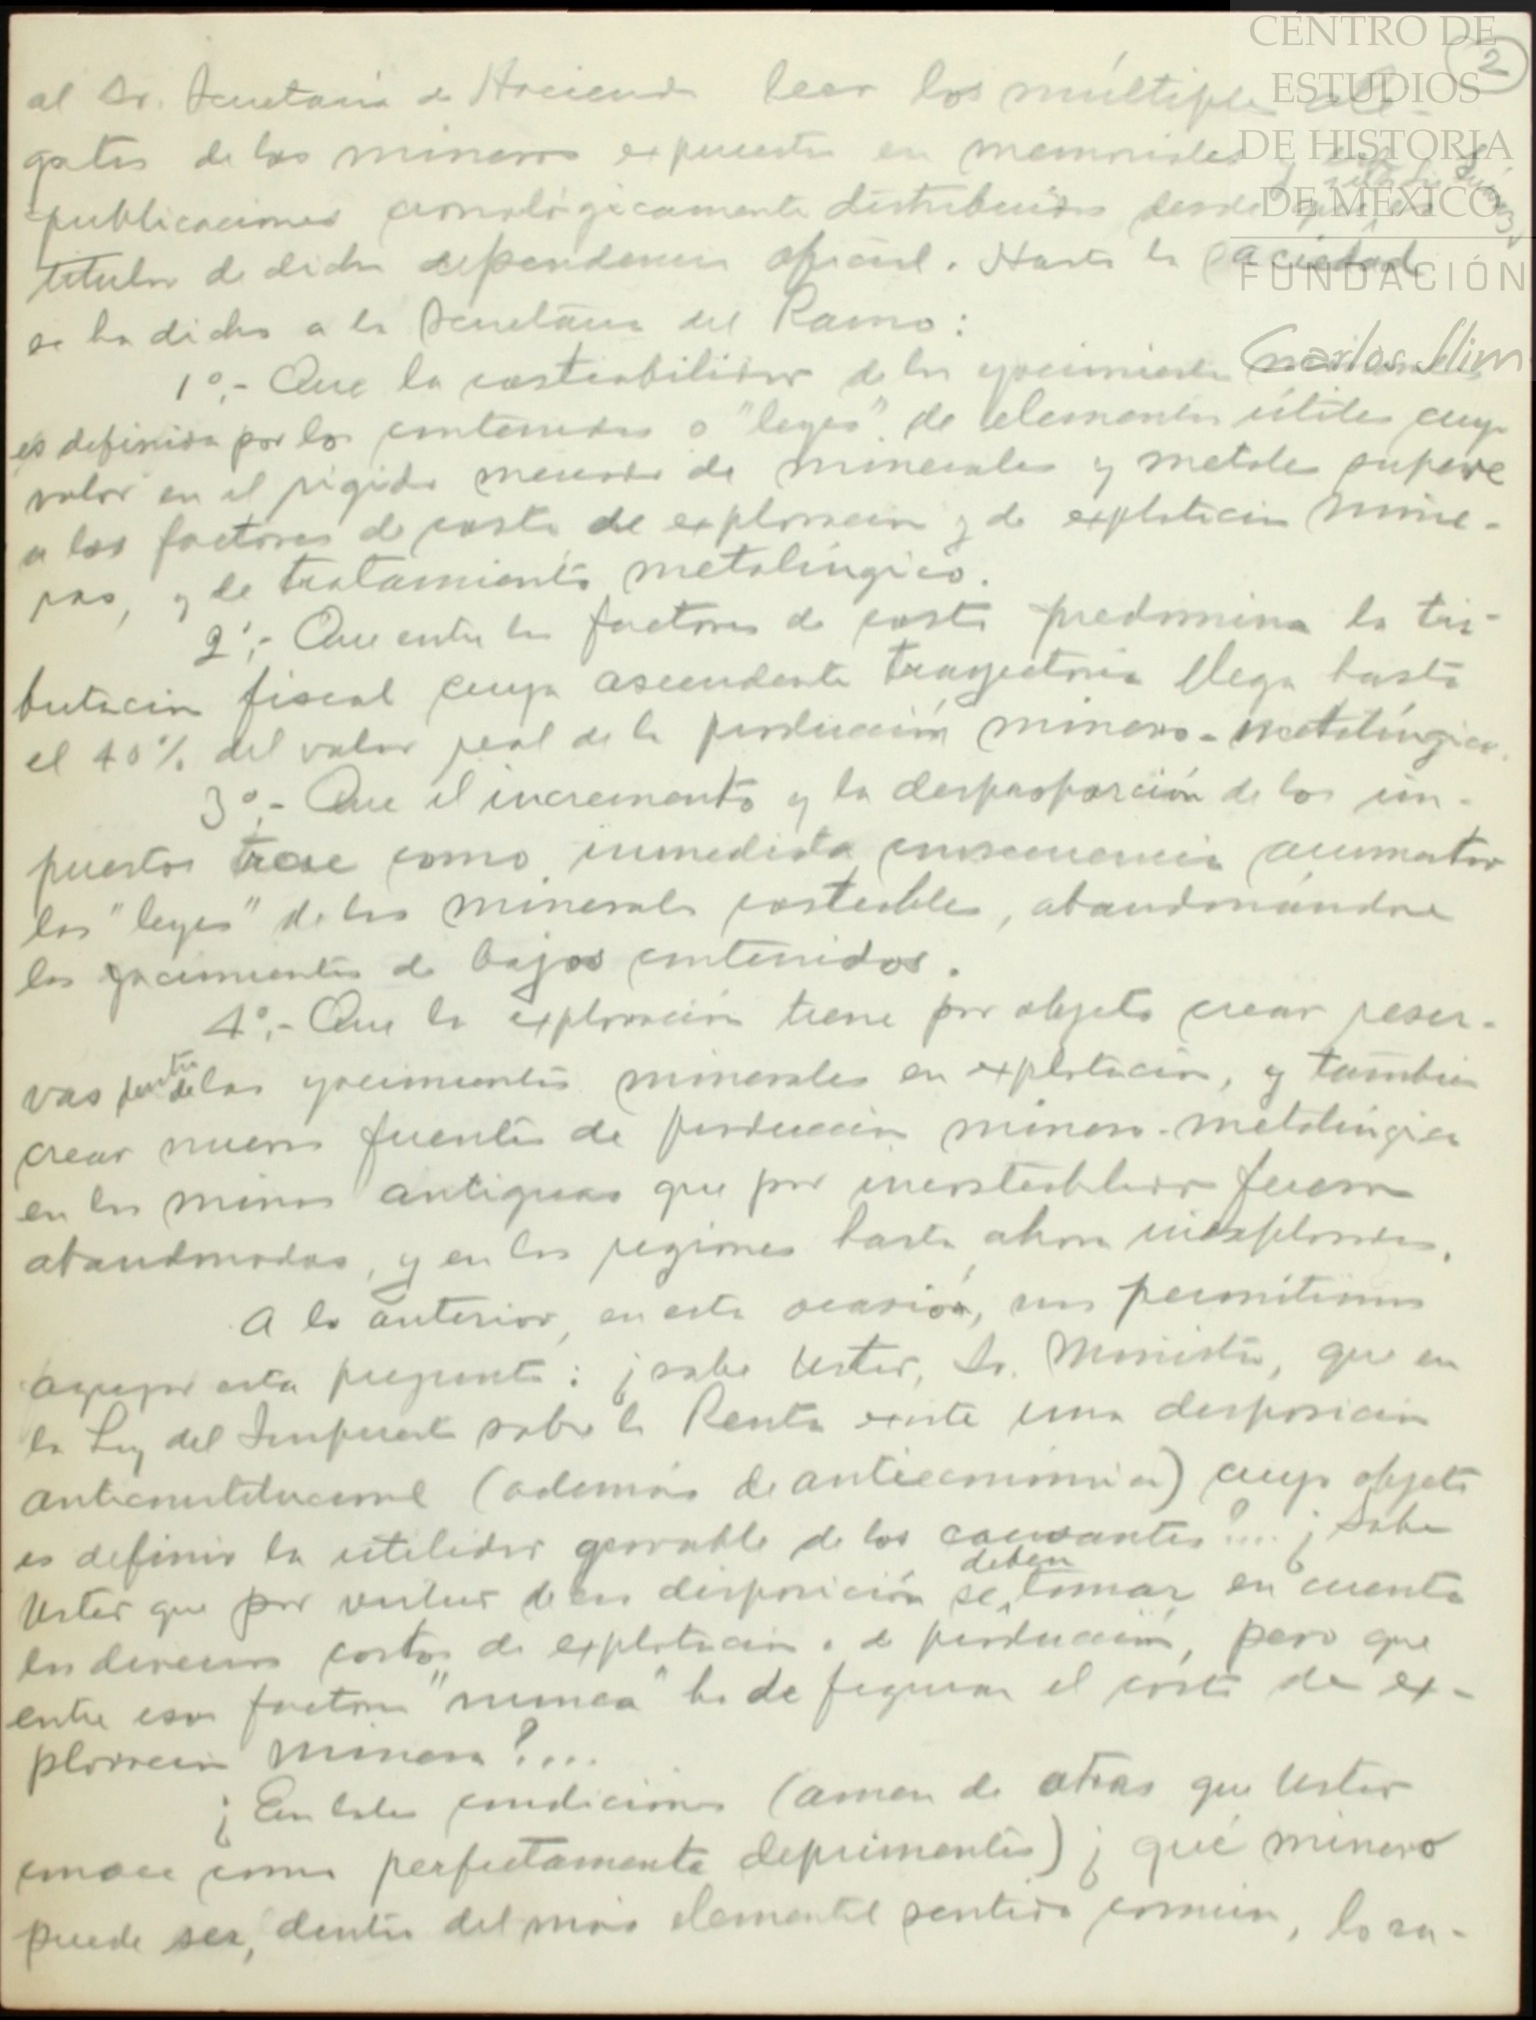 CENTRO DE
ESTUDIOS
DE HISTORIA
DE MÉXICO
FUNDACIÓN
Carlos Slim
2
al Sr. Secretario de Hacienda leer los múltiples ale-
gatos de los mineros expuestos en memoriales y
publicaciones cronológicamente distribuidos desde
titular de dicha dependencia oficial. Hasta la saciedad
se ha dicho a la Secretaría del Ramo:
1º,- Que la costeabilidad de los yacimientos minerales
es definida por los contenidos o "leyes" de elementos útiles cuyo
valor en el rígido mercado de minerales y metales supere
a los factores de costo de exploración y de explotación mine-
ras, y de tratamiento metalúrgico.
2º,- Que entre los factores de costo predomina la tri-
butación fiscal cuya ascendente trayectoria llega hasta
el 40% del valor real de la producción minero-metalúrgica.
3º,- Que el incremento y la desproporción de los im-
puestos trae como inmediata consecuencia aumentar
las "leyes" de los minerales costeables, abandonándose
los yacimientos de bajos contenidos.
4º,- Que la exploración tiene por objeto crear reser-
vas dentro de los yacimientos minerales en explotación, y también
crear nuevas fuentes de producción minero-metalúrgica
en las minas antiguas que por incosteables fueron
abandonadas, y en las regiones hasta ahora inexploradas.
A lo anterior, en esta ocasión, nos permitimos
agregar esta pregunta: ¿sabe Usted, Sr. Ministro, que en
la Ley del Impuesto sobre la Renta existe una disposición
anticonstitucional (además de antieconómica) cuyo objeto
es definir la utilidad gravable de los causantes?... ¿Sabe
Usted que por virtud de esa disposición se deben tomar en cuenta
los diversos costos de explotación o de producción, pero que
entre esos factores "nunca" ha de figurar el costo de ex-
ploración minera?...
¿En tales condiciones (amen de otras que Usted
conoce como perfectamente deprimentes) ¿qué minero
puede ser, dentro del más elemental sentido común, lo su-